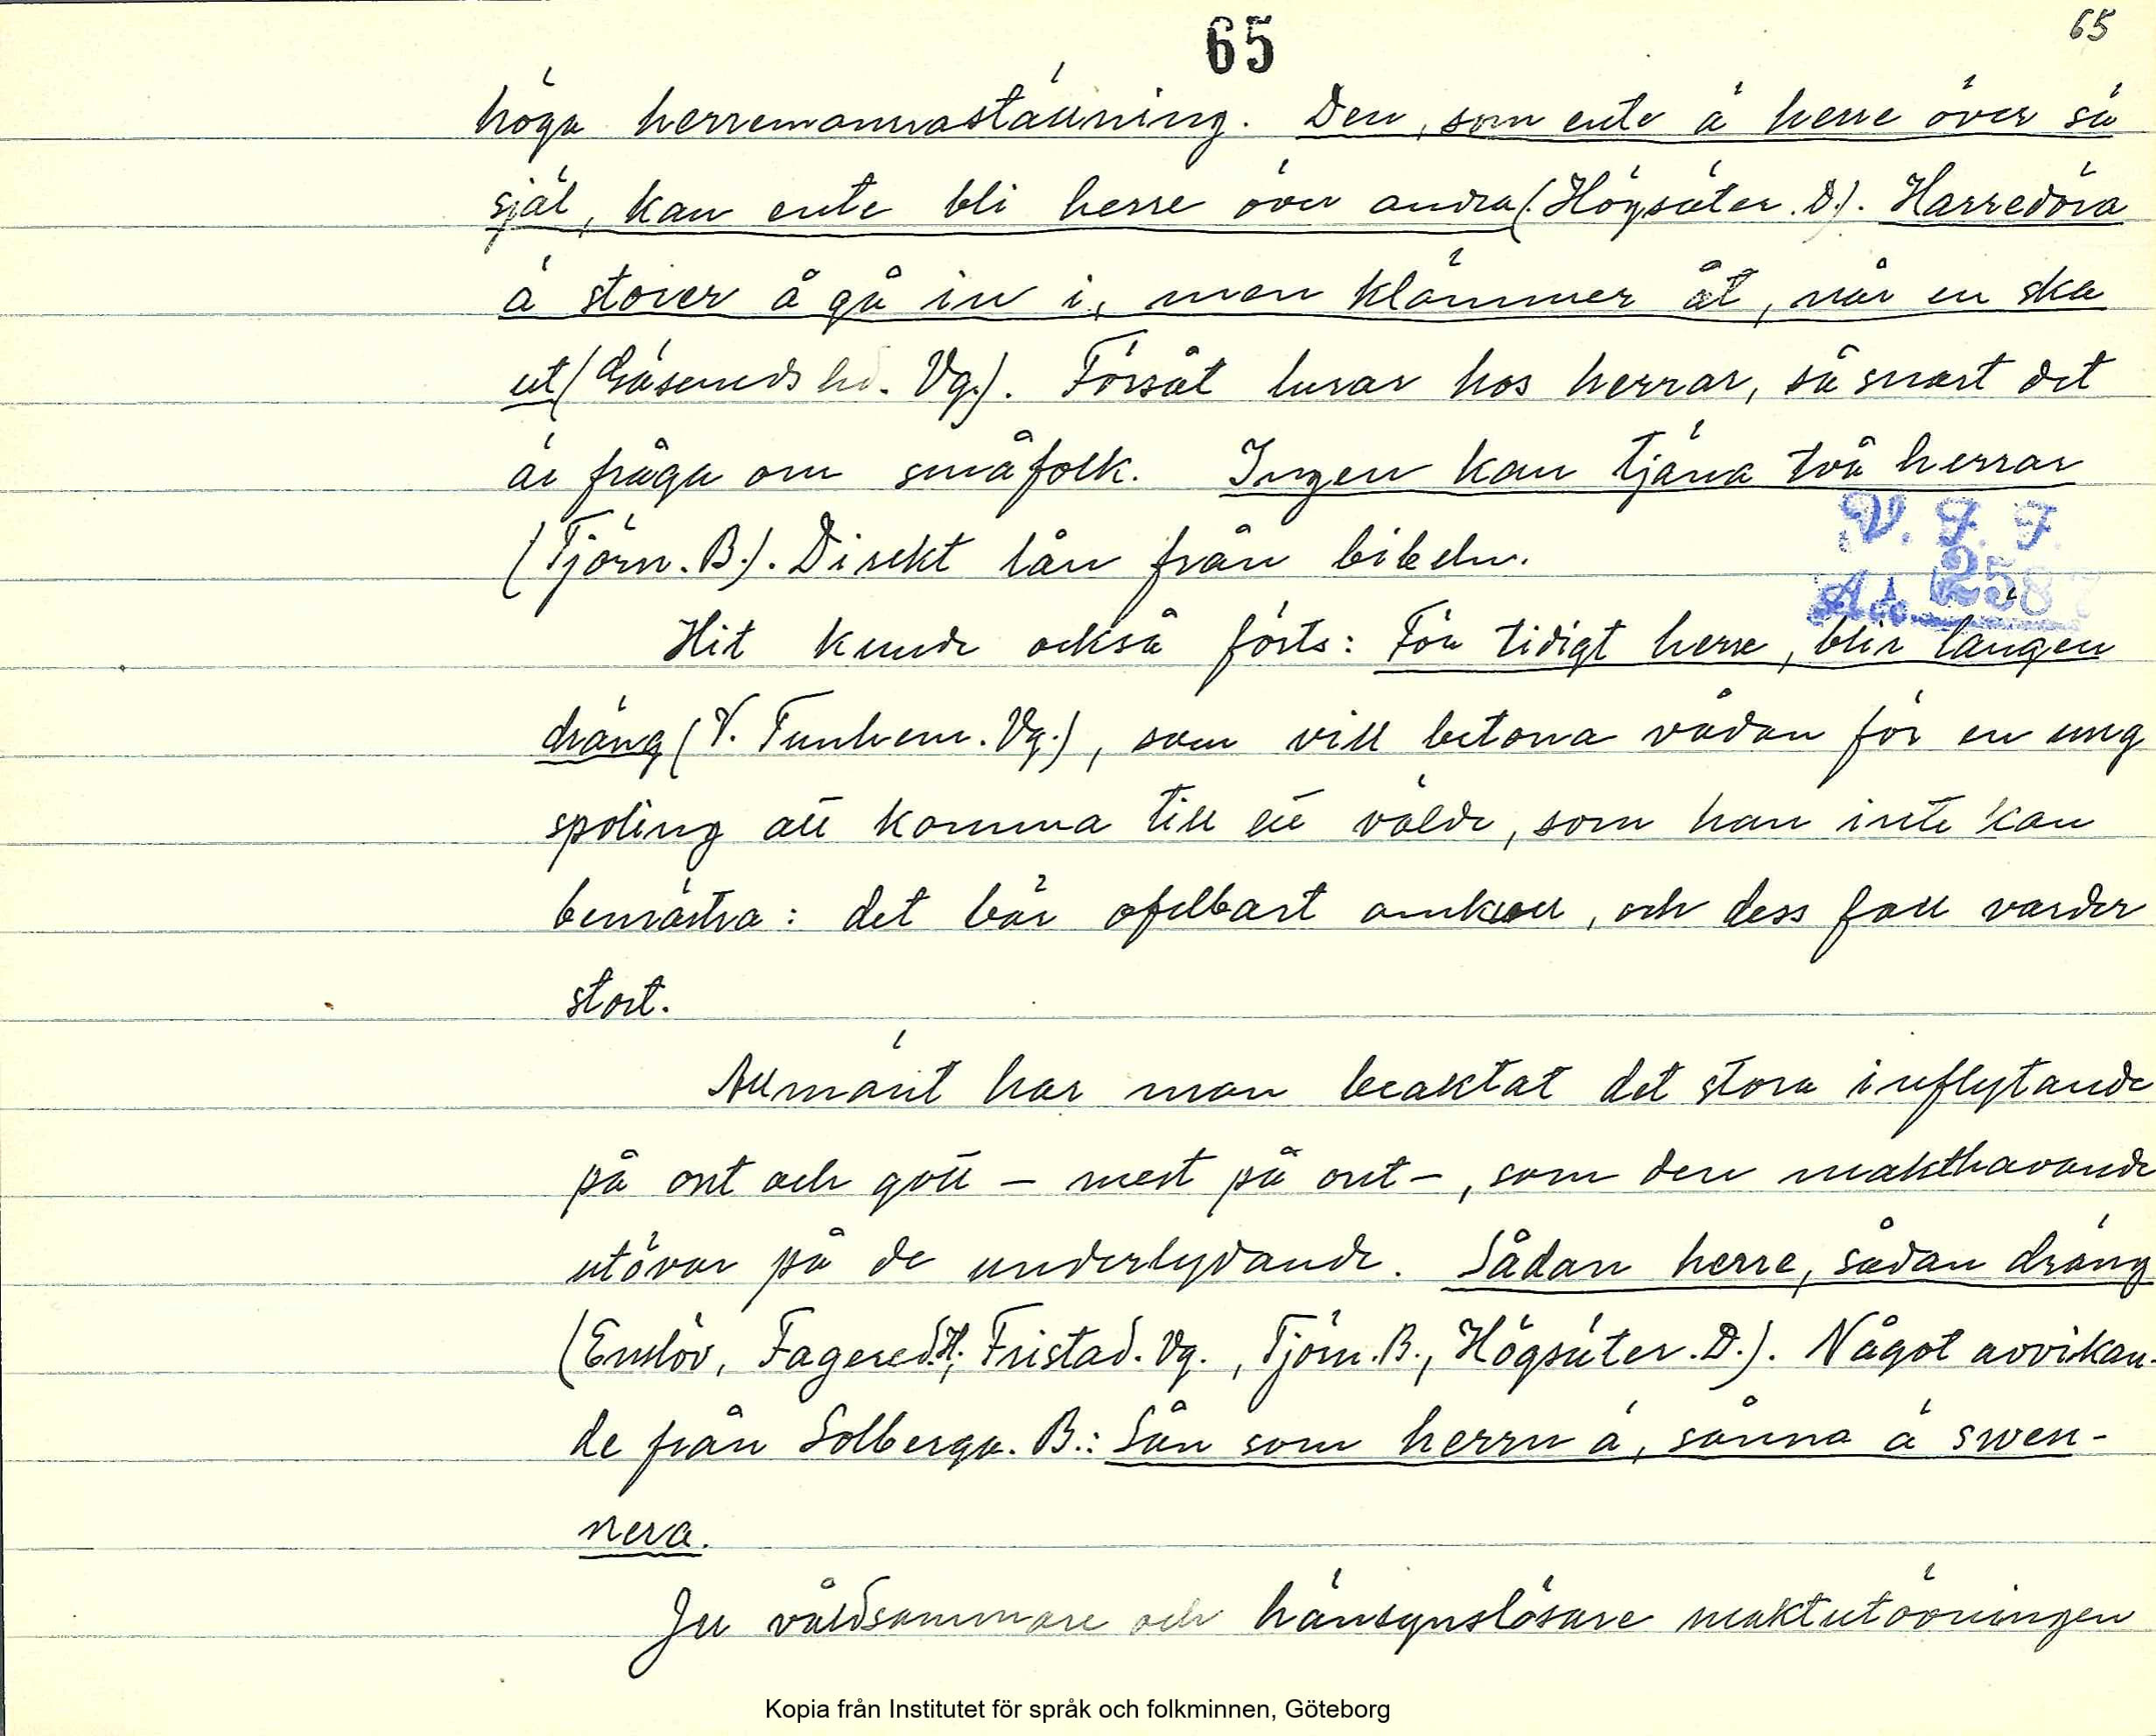 65
65
höga herremannaställning. Den, som ente ä herre över sä
själ, kan ente bli herre över andra (Högsäter. D.). Harredöra
ä stoer å gå in i, men klämmer åt, när en ska
ut (Gäseneds hd. Vg.). Försåt lurar hos herrar, så snart det
är fråga om småfolk. Ingen kan tjäna två herrar
(Tjörn. B.). Direkt lån från bibeln.
V. F. F.
Acc. 2587
Hit kunde också förts: För tidigt herre, blir längen
dräng (V. Tunhem. Vg.), som vill betona vådan för en ung
spoling att komma till ett välde, som han inte kan
bemästra: det bär ofelbart omkull, och dess fall varder
stort.
Allmänt har man beaktat det stora inflytande
på ont och gott – mest på ont –, som den makthavande
utövar på de underlydande. Sådan herre, sådan dräng
(Enslöv, Fagered. H., Fristad. Vg., Tjörn. B., Högsäter. D.). Något avvikan-
de från Solberga. B.: Sån som herrn ä, sånna ä swen-
nera.
Ju våldsammare och hänsynslösare maktutövningen
Kopia från Institutet för språk och folkminnen, Göteborg